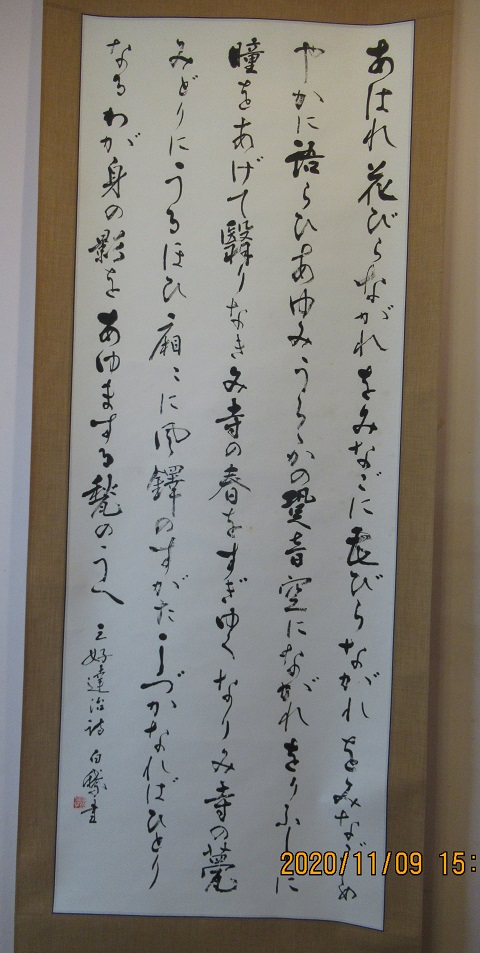 あはれ花びらながれをみなごに花びらながれをみなごしめ
やかに語らひあゆみうらゝかの跫音空にながれをりふしに
瞳をあげて翳りなきみ寺の春をすぎゆくなりみ寺の甍
みどりにうるほひ廂〻に風鐸のすがたしづかなればひとり
なるわが身の影をあゆまする甃のうへ
三好達治詩 白 書
2020/11/09 15: